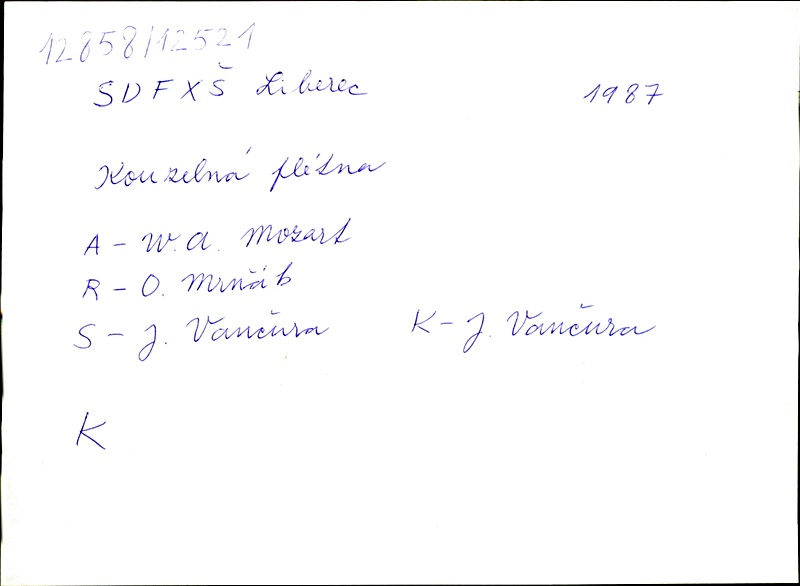 12858/12521
SDFXŠ Liberec 1987
Kouzelná flétna
A - W. A. Mozart
R - O. Mrňák
S - J. Vančura K - J. Vančura
K